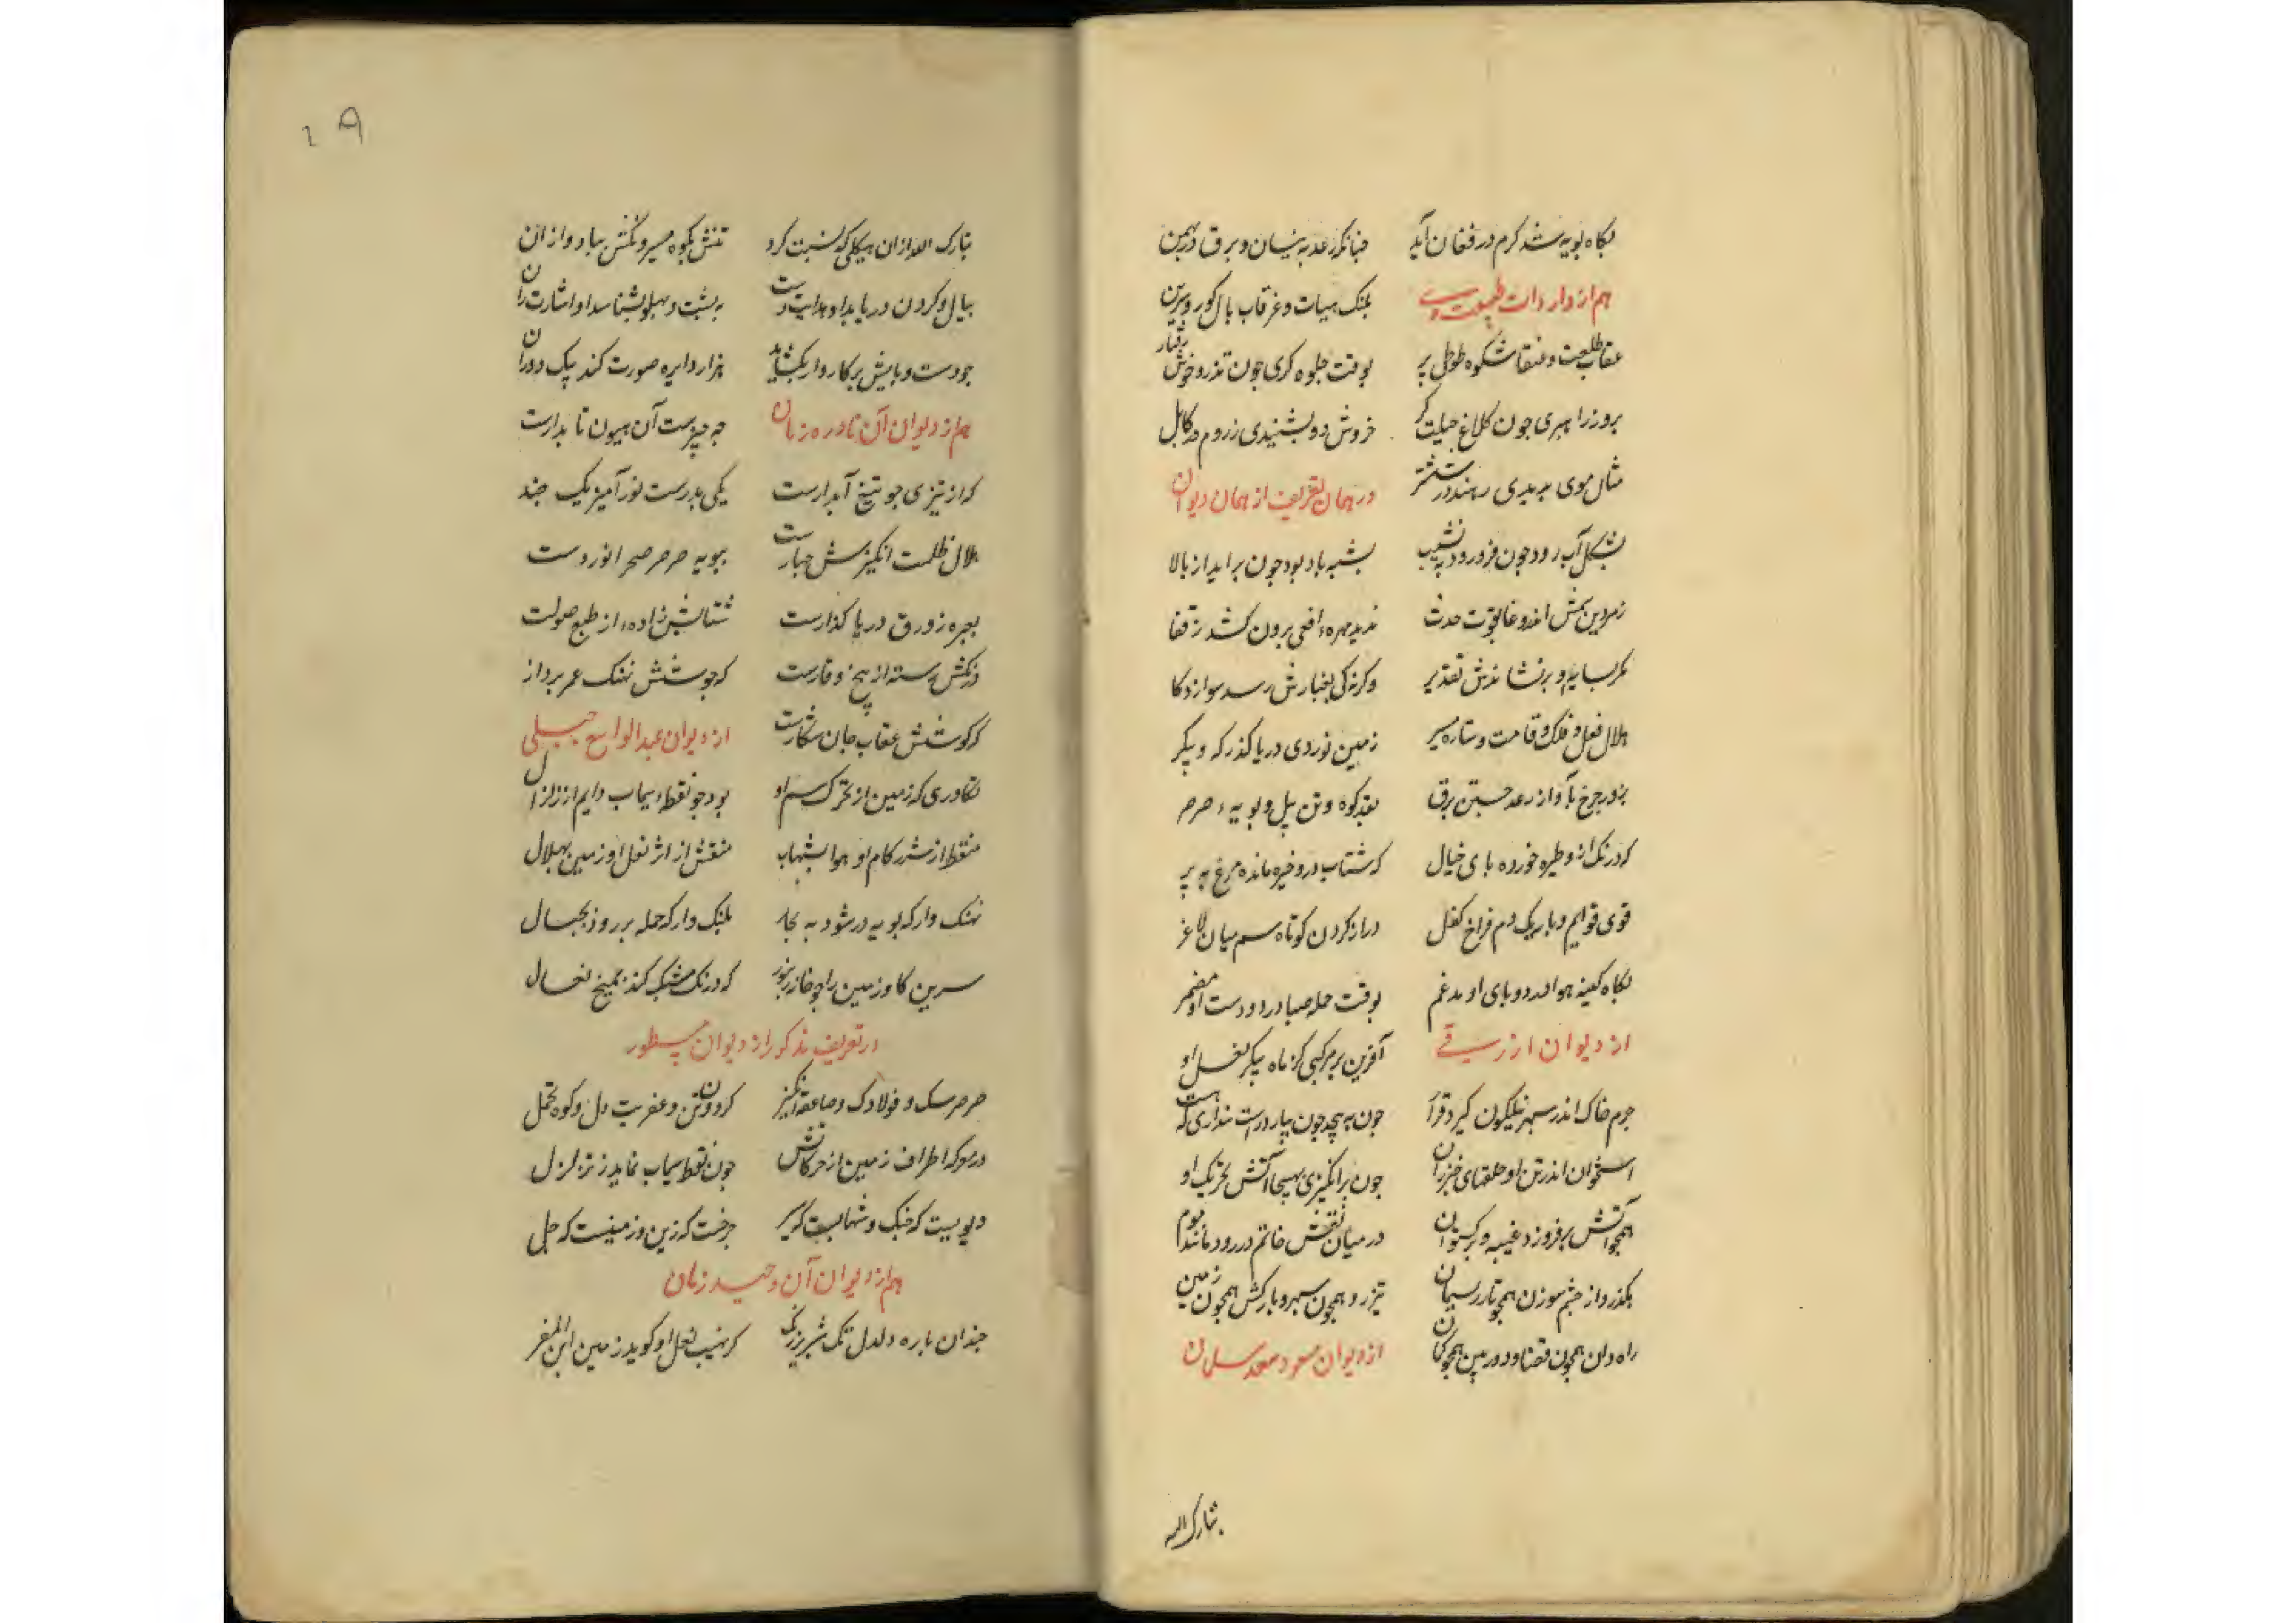 بگاه پویه شد کرم در فغان آید
چنانکه رعد به نیسان و برق در بهمن
هم از واردات طبیعت وی
پلنک هیبات و غرقاب بال کور و سرین
عقاب طلعت و عنقا شکوه طوطی پر
بوقت جلوه کری چون تذرو خوش رفتار
بروز را هبری چون کلاغ حیلت کر
خروش دو بشنیدی ز روم در کابل
مثال موی بدیدی بهند در ششتر
در همان تعریف از همان دیوان
بشکل آب رود چون فرو رود به نشیب
بشبه باد بود چون براید از بالا
ندیده مهره افعی برون کشد ز قفا
وکرنه کی بغبارش رسد سوار ذکا
هلال نعل و فلک قامت و ستاره مسیر
زمین نوردی دریا کذر که و پیکر
بزور چرخ باواز رعد جستن برق
بقد کوه و تن پیل و پویه صرصر
که درنک ازو طیره خورده پای خیال
که شتاب درو خیره مانده مرغ به پر
قوی قوایم و باریک دم فراخ کفل
دراز کردن کوتاه سم میان لاغر
بگاه کینه هوا در دو پای او مدغم
بوقت حمله صبا در دو دست او مضمر
از دیوان ازرقی
آفرین بر مرکبی کز ماه پیکر نعل او
جرم خاک اندر سپهر نیلکون کیرد قرار
چون به پیچد چون پیاردراست پنداری که هست
استخوان اندر تن او حلقهای خیزران
چون برانکیزی بهیجا آتش تحریک او
همچو آتش برفروزد غیبه و برکستوان
در میان نقش خاتم در رود مانند موم
بکذرد از چشم سوزن همچو تار ریسمان
تیزرو همچون سپهر و بارکش همچون زمین
راه دان همچون قضا و دوربین همچون کمان
از دیوان مسعود سعد سلمان
تبارک الله
۱۹
تبارک الله ازان هیکلی که نسبت کرد
تنش بکوه مسیر و تکش بباد وزان
بیال و کردن دریابد او هدایت دست
به پشت و پهلو بشناسد او اشارت ران
چو دست و پایش پرکار وار بکشاید
هزار دایره صورت کند بیک دوران
هم از دیوان آن نادره زمان
چه چیزست آن هیون تابدارست
که از تیزی چو تیغ آبدارست
یکی بدرست نور آمیز یک چند
هلال ظلمت انکیزش چهارست
بپویه صرصر صحرا نوردست
بچهره زورق دریا کذارست
شتابش زاده از طبع صولت
درنکش رسته از بیخ وقارست
که جوشش نهنک عمر پرداز
که کوشش عقاب جان شکارست
از دیوان عبدالواسع جبلی
تکاوری که زمین از تحرک سم او
بود چو نقطه سیماب دایم از زلزال
منقط از شرر کام او هوا بشهاب
منقش از اثر نعل او زمین بهلال
نهنک وار که پویه در شود به بحار
پلنک وار که حمله بر رود بجبال
سرین کاو زمین را چو خانه زنبور
که درنک مشبک کند بمیخ نعال
در تعریف مذکور از دیوان مسطور
صرصر سک و فولاد رک و صاعقه انکیز
کردون تن و عفریت دل و کوه تحمل
در معرکه اطراف زمین از حرکاتش
چون نقطه سیماب نماید ز تزلزل
دیویست که خنک و شهابیست که سیر
چرخست که زین و زمینست که جل
هم از دیوان آن وحید زمان
چندان باره دلدل تک شبرنک
کز نهیب نعل او کوید زمین این المفر